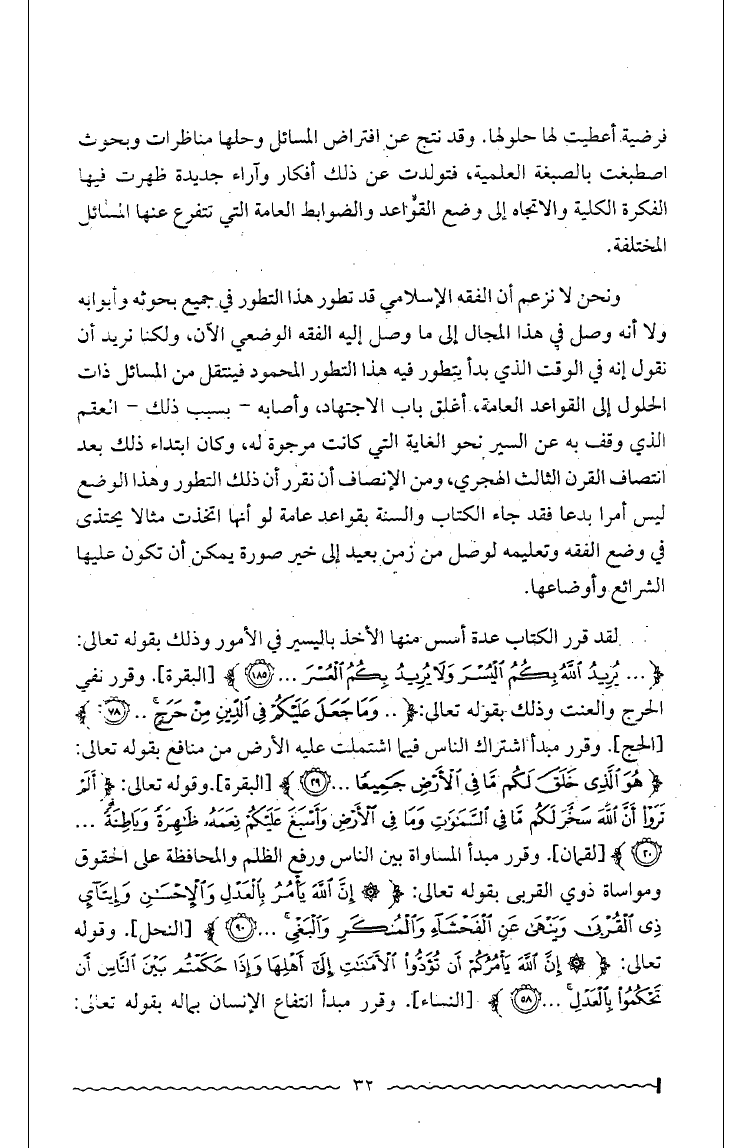 فرضية أعطيت لها حلولها. وقد نتج عن افتراض المسائل وحلها مناظرات وبحوث
اصطبغت بالصبغة العلمية، فتولدت عن ذلك أفكار وآراء جديدة ظهرت فيها
الفكرة الكلية والاتجاه إلى وضع القواعد والضوابط العامة التي تتفرع عنها المسائل
المختلفة.
ونحن لا نزعم أن الفقه الإسلامي قد تطور هذا التطور في جميع بحوثه وأبوابه
ولا أنه وصل في هذا المجال إلى ما وصل إليه الفقه الوضعي الآن، ولكنا نريد أن
نقول إنه في الوقت الذي بدأ يتطور فيه هذا التطور المحمود فينتقل من المسائل ذات
الحلول إلى القواعد العامة، أغلق باب الاجتهاد، وأصابه – بسبب ذلك – العقم
الذي وقف به عن السير نحو الغاية التي كانت مرجوة له، وكان ابتداء ذلك بعد
انتصاف القرن الثالث الهجري، ومن الإنصاف أن نقرر أن ذلك التطور وهذا الوضع
ليس أمرا بدعا فقد جاء الكتاب والسنة بقواعد عامة لو أنها اتخذت مثالا يحتذى
في وضع الفقه وتعليمه لوصل من زمن بعيد إلى خير صورة يمكن أن تكون عليها
الشرائع وأوضاعها.
لقد قرر الكتاب عدة أسس منها الأخذ باليسير في الأمور وذلك بقوله تعالى:
﴿ ... يُرِيدُ اللَّهُ بِكُمُ الْيُسْرَ وَلَا يُرِيدُ بِكُمُ الْعُسْرَ ... ١٨٥ ﴾ [البقرة]. وقرر نفي
الحرج والعنت وذلك بقوله تعالى: ﴿ .. وَمَا جَعَلَ عَلَيْكُمْ فِي الدِّينِ مِنْ حَرَجٍ ۚ .. ٧٨ ﴾
[الحج]. وقرر مبدأ اشتراك الناس فيما اشتملت عليه الأرض من منافع بقوله تعالى:
﴿ هُوَ الَّذِي خَلَقَ لَكُم مَّا فِي الْأَرْضِ جَمِيعًا ... ٢٩ ﴾ [البقرة]. وقوله تعالى: ﴿ أَلَمْ
تَرَوْا أَنَّ اللَّهَ سَخَّرَ لَكُم مَّا فِي السَّمَٰوَٰتِ وَمَا فِي الْأَرْضِ وَأَسْبَغَ عَلَيْكُمْ نِعَمَهُ ظَٰهِرَةً وَبَاطِنَةً ۗ ...
٢٠ ﴾ [لقمان]. وقرر مبدأ المساواة بين الناس ورفع الظلم والمحافظة على الحقوق
ومواساة ذوي القربى بقوله تعالى: ﴿ ۞ إِنَّ اللَّهَ يَأْمُرُ بِالْعَدْلِ وَالْإِحْسَٰنِ وَإِيتَآيِ
ذِي الْقُرْبَىٰ وَيَنْهَىٰ عَنِ الْفَحْشَآءِ وَالْمُنكَرِ وَالْبَغْيِ ۚ ... ٩٠ ﴾ [النحل]. وقوله
تعالى: ﴿ ۞ إِنَّ اللَّهَ يَأْمُرُكُمْ أَن تُؤَدُّوا الْأَمَٰنَٰتِ إِلَىٰ أَهْلِهَا وَإِذَا حَكَمْتُم بَيْنَ النَّاسِ أَن
تَحْكُمُوا بِالْعَدْلِ ۚ ... ٥٨ ﴾ [النساء]. وقرر مبدأ انتفاع الإنسان بماله بقوله تعالى:
٣٢